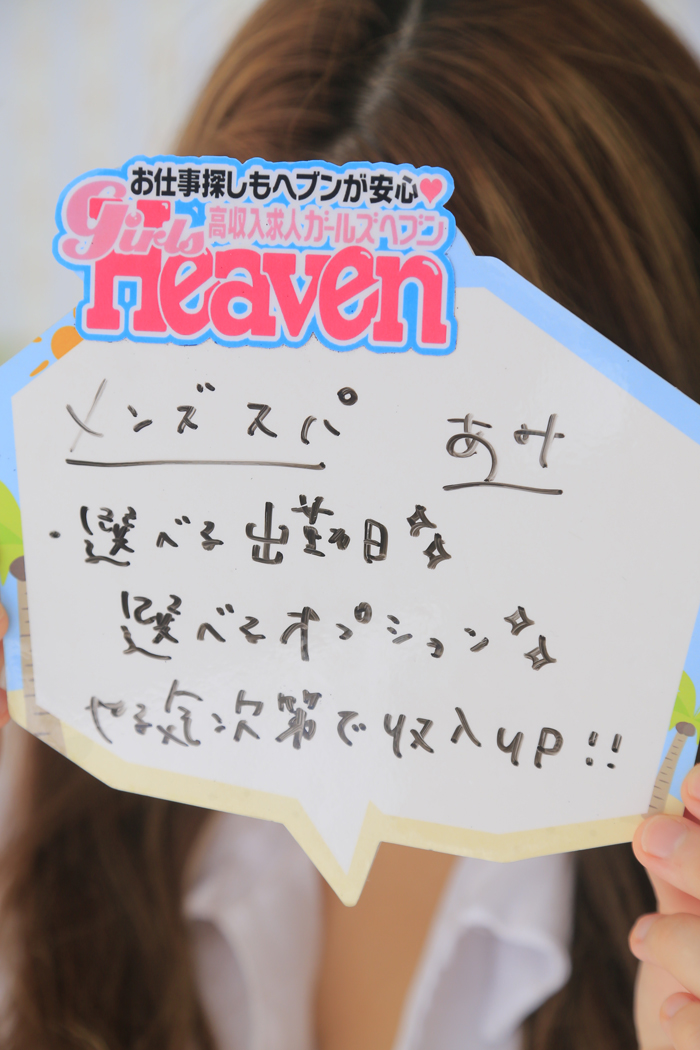 お仕事探しもヘブンが安心♥
高収入求人ガールズヘブン
Girls
Heaven
メンズスパ あみ
・選べる出勤日✧✧
選べるオプション✧✧
やる気次第で収入UP!!